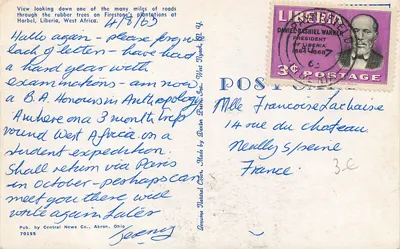 View looking down one of the many miles of roads
through the rubber trees on Firestone's plantations at
Harbel, Liberia, West Africa.
4/8/63
Hallo again - please forgive
lack of letter - have had
a hard year with
examinations - am now
a B.A. Honours in Anthropology
Am here on a 3 month trip
round West Africa on a
student expedition.
Shall return via Paris
in October - perhaps can
meet you there will
write again later
Jeremy
Pub. by Central News Co., Akron, Ohio
70085
POST CARD
LIBERIA
DANIEL BASHIEL WARNER
PRESIDENT
OF LIBERIA
1864-1868
3¢ POSTAGE
Mlle Francoise Lachaise
14 rue du chateau
Neuilly s/seine
France.
3.C